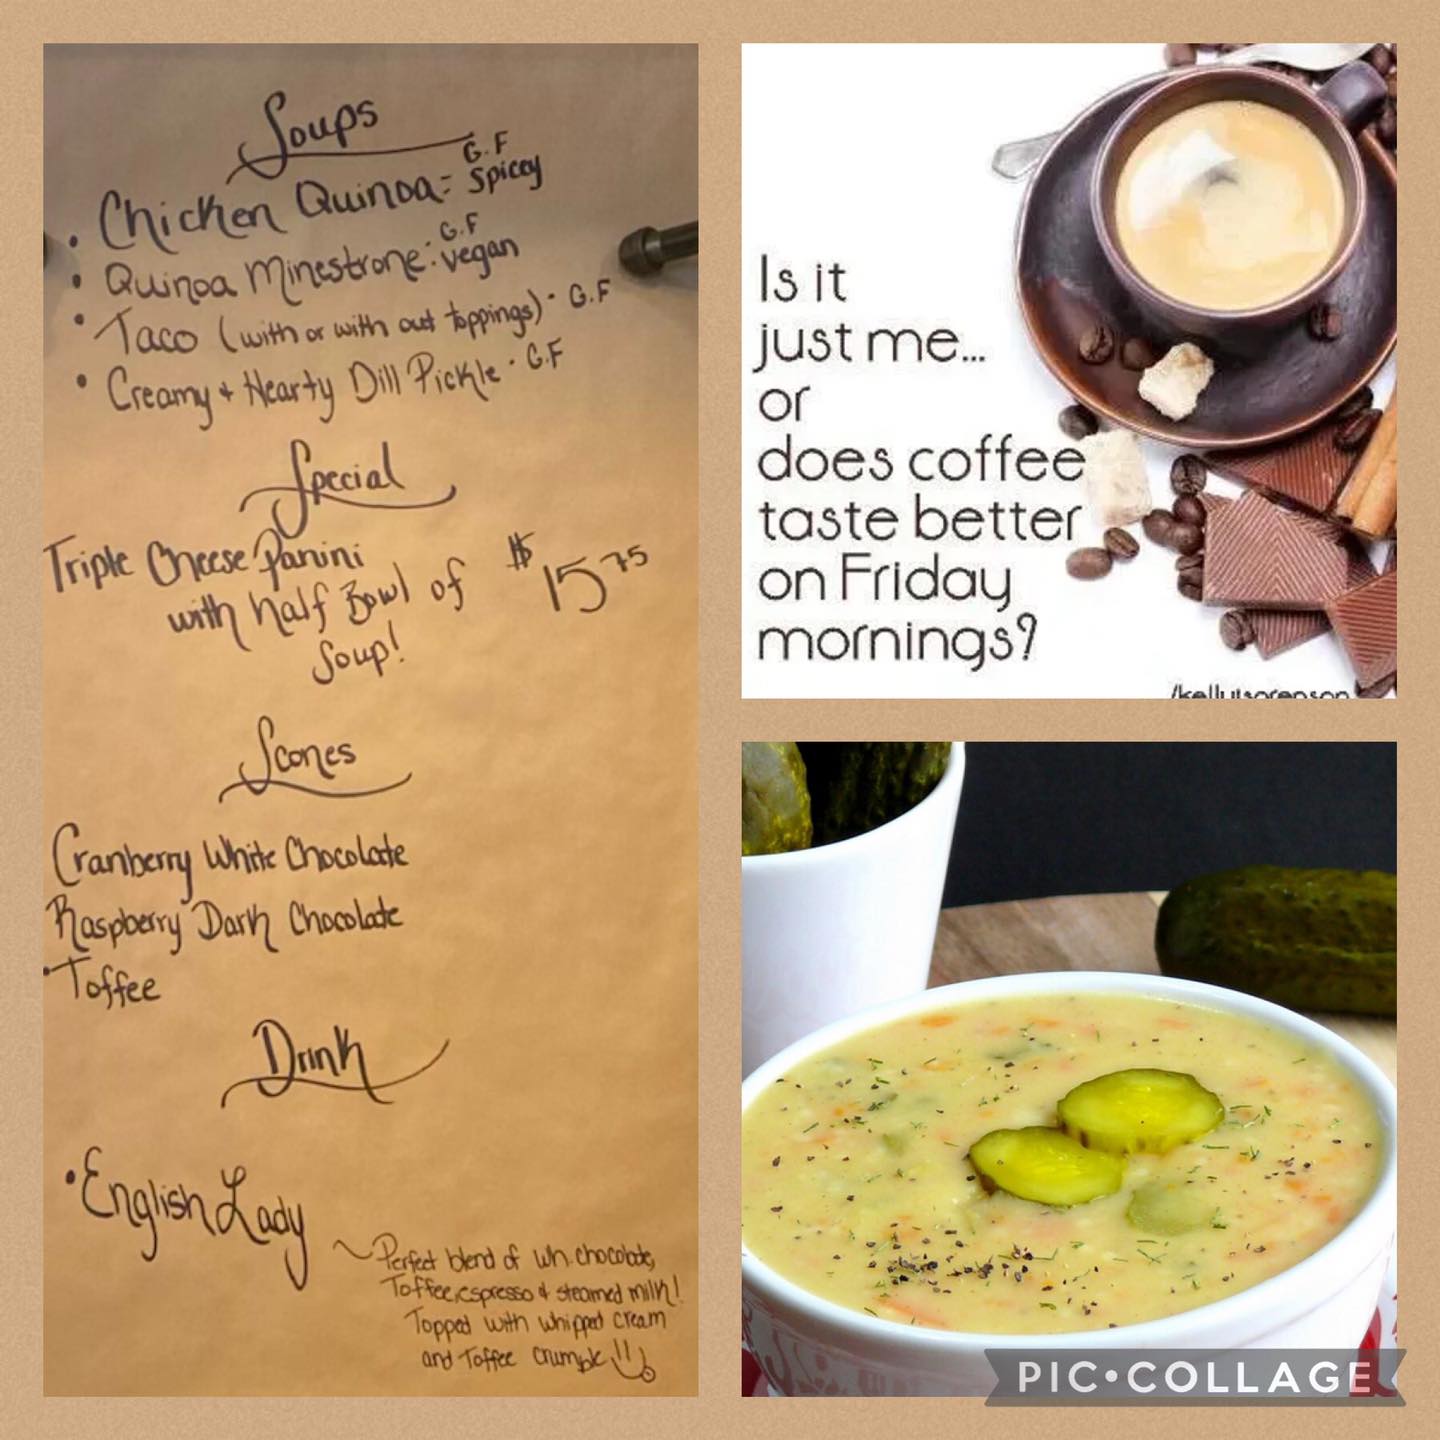 Soups
G.F
• Chicken Quinoa = Spicey
G.F
• Quinoa Minestrone: vegan
• Taco (with or with out toppings) • G.F
• Creamy + Hearty Dill Pickle • G.F
Special
Triple Cheese Panini
with half Bowl of
Soup!
$15 75
Scones
Cranberry White Chocolate
Raspberry Dark Chocolate
• Toffee
Drink
• English Lady
~ Perfect blend of wh. chocolate,
Toffee, espresso & steamed milk!
Topped with whipped cream
and Toffee crumble !!
Is it
just me...
or
does coffee
taste better
on Friday
mornings?
/kellyjsorenson
PIC•COLLAGE